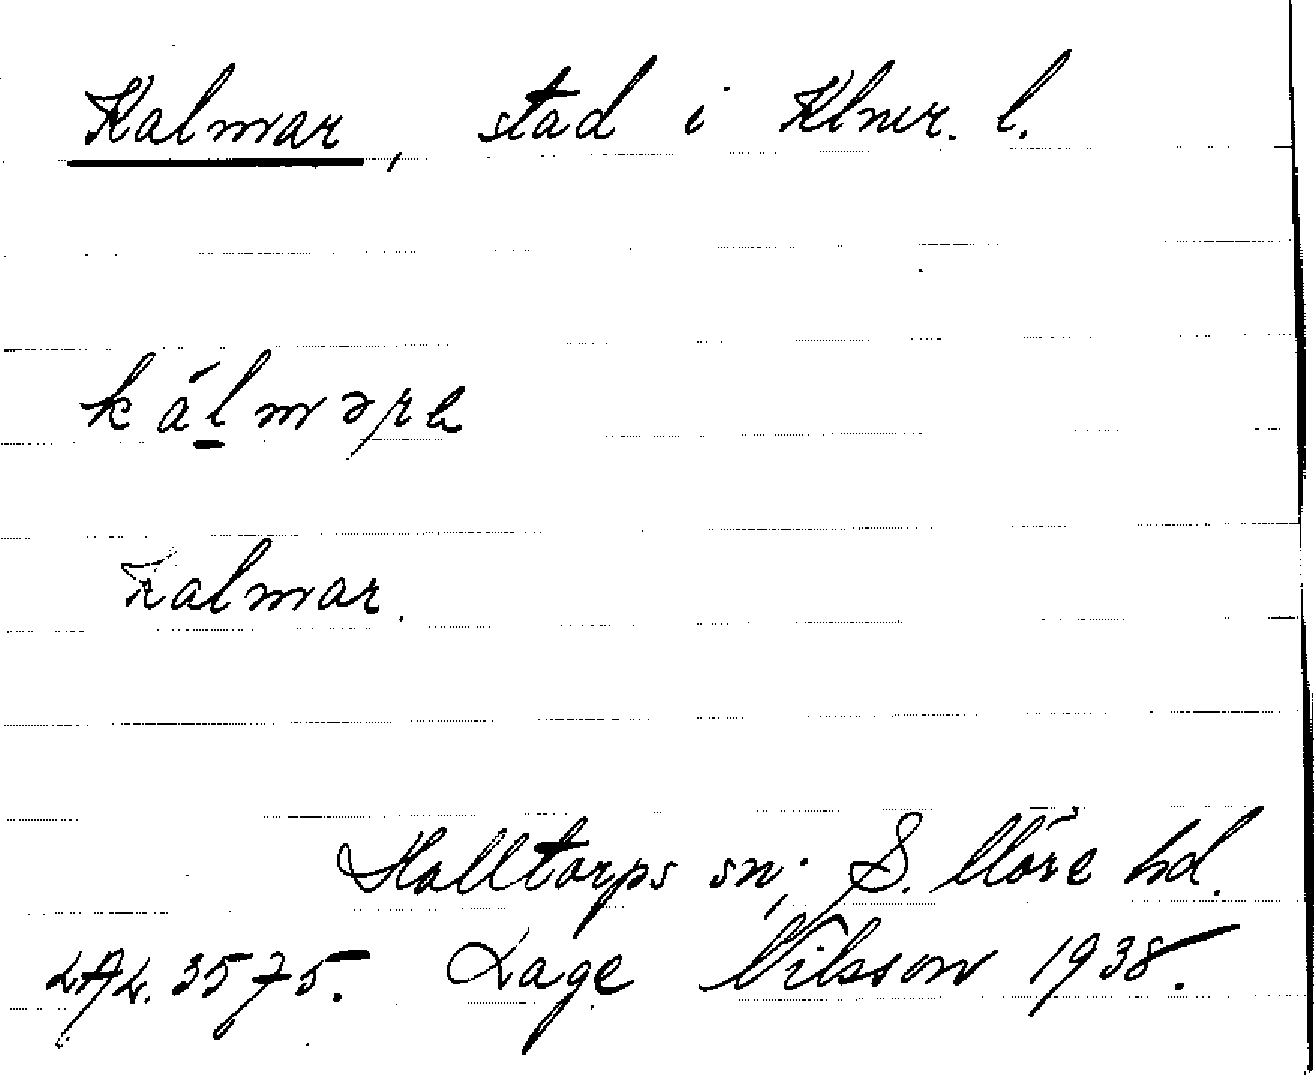 Kalmar, stad i Klmr. l.
kálmərɑ
Kalmar.
Halltorps sn; S. Möre hd.
LAL. 3575. Lage Nilsson 1938.